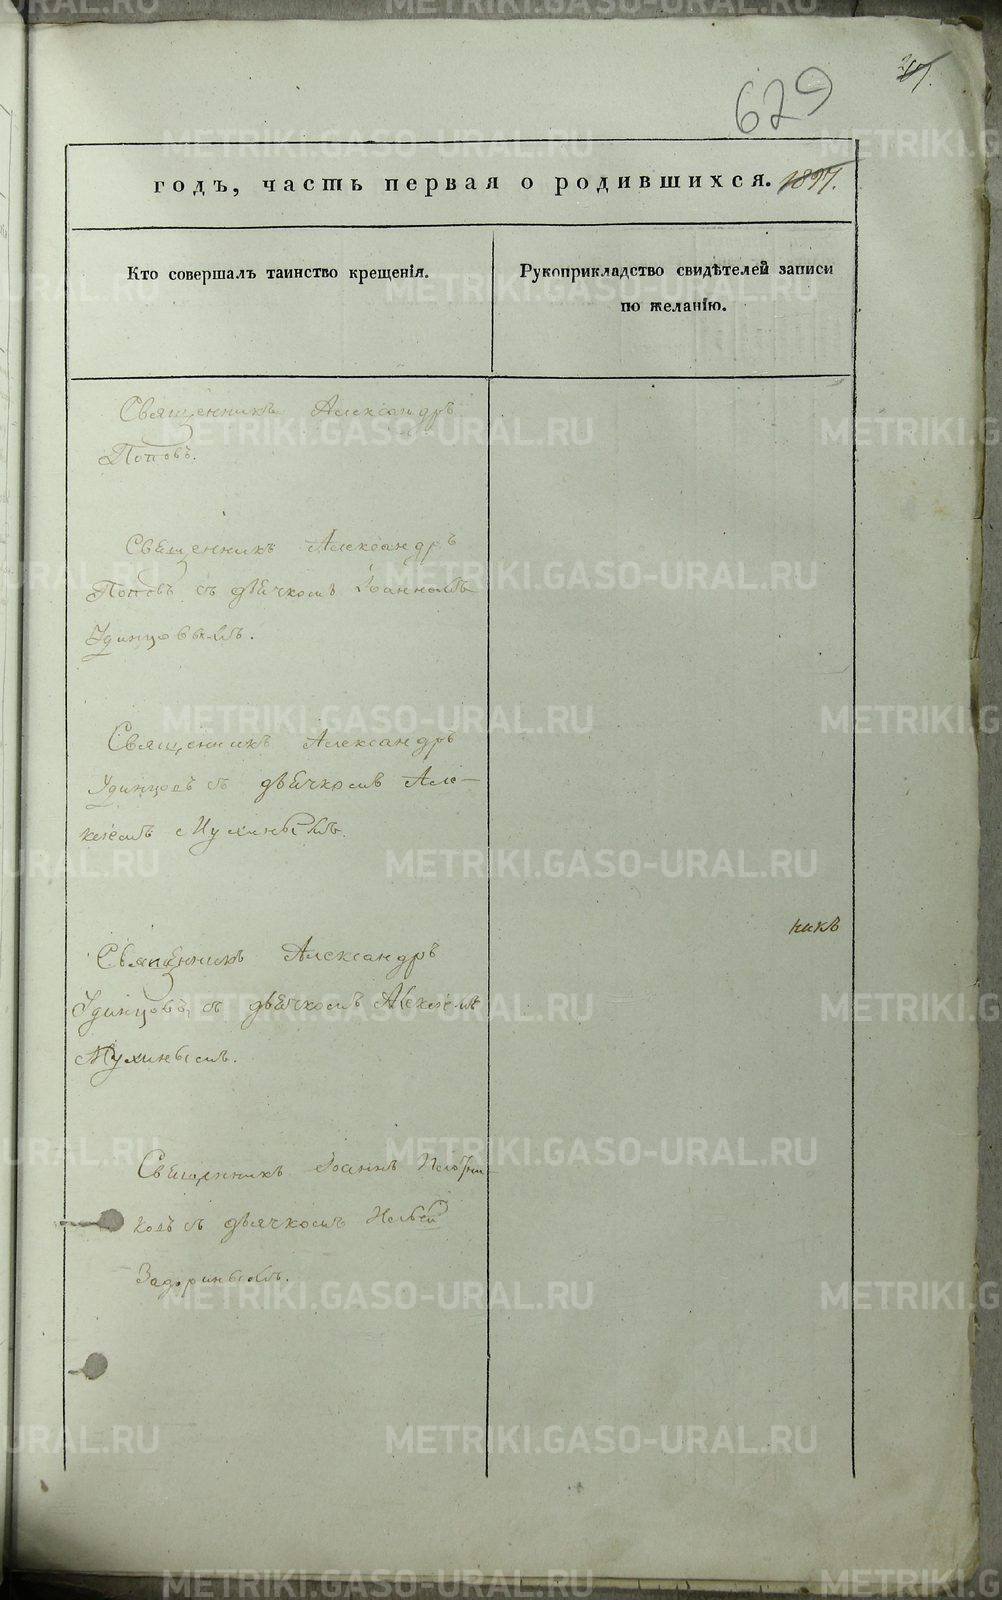 629
годъ, часть первая о родившихся.
Кто совершалъ таинство крещенія.
Рукоприкладство свидѣтелей записи
по желанію.
Священникъ Александръ
Поповъ.
Священникъ Александръ
Поповъ съ дьячкомъ Іоанномъ
Удинцовымъ.
Священникъ Александръ
Удинцовъ съ дьячкомъ Але-
ксѣемъ Мухинымъ.
никъ
Священникъ Александръ
Удинцовъ съ дьячкомъ Алексѣемъ
Мухинымъ.
Священникъ Іоаннъ
ковъ съ дьячкомъ
Задоринымъ.
METRIKI.GASO-URAL.RU